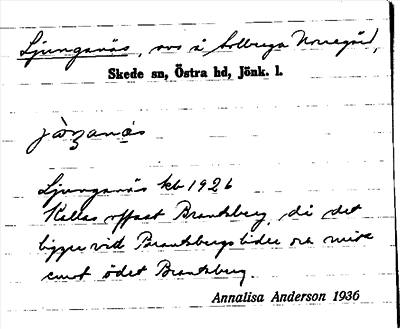 Ljunganäs, avs å Solberga Norregård,
Skede sn, Östra hd, Jönk. l.
jòŋanäs
Ljunganäs kb 1926
Kallas oftast Brantsberg, då det
ligger vid Brantsbergs lider och
ödet Brantsberg.
Annalisa Anderson 1936